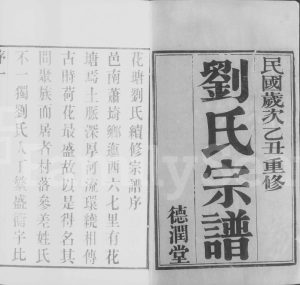 民國歲次乙丑重修
劉氏宗譜
德潤堂
花塘劉氏續修宗譜序
邑南蕭琦鄉迤西六七里有花
塘焉土脈深厚河流環繞相傳
古時荷花最盛故以是得名其
間聚族而居者村落參差姓氏
不一獨劉氏人丁繁盛衡宇比
序一